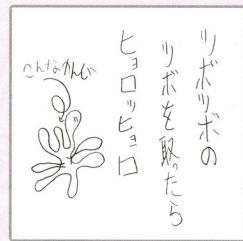 ツボツボの
ツボを取ったら
ヒョロッヒョロ
こんなかんじ